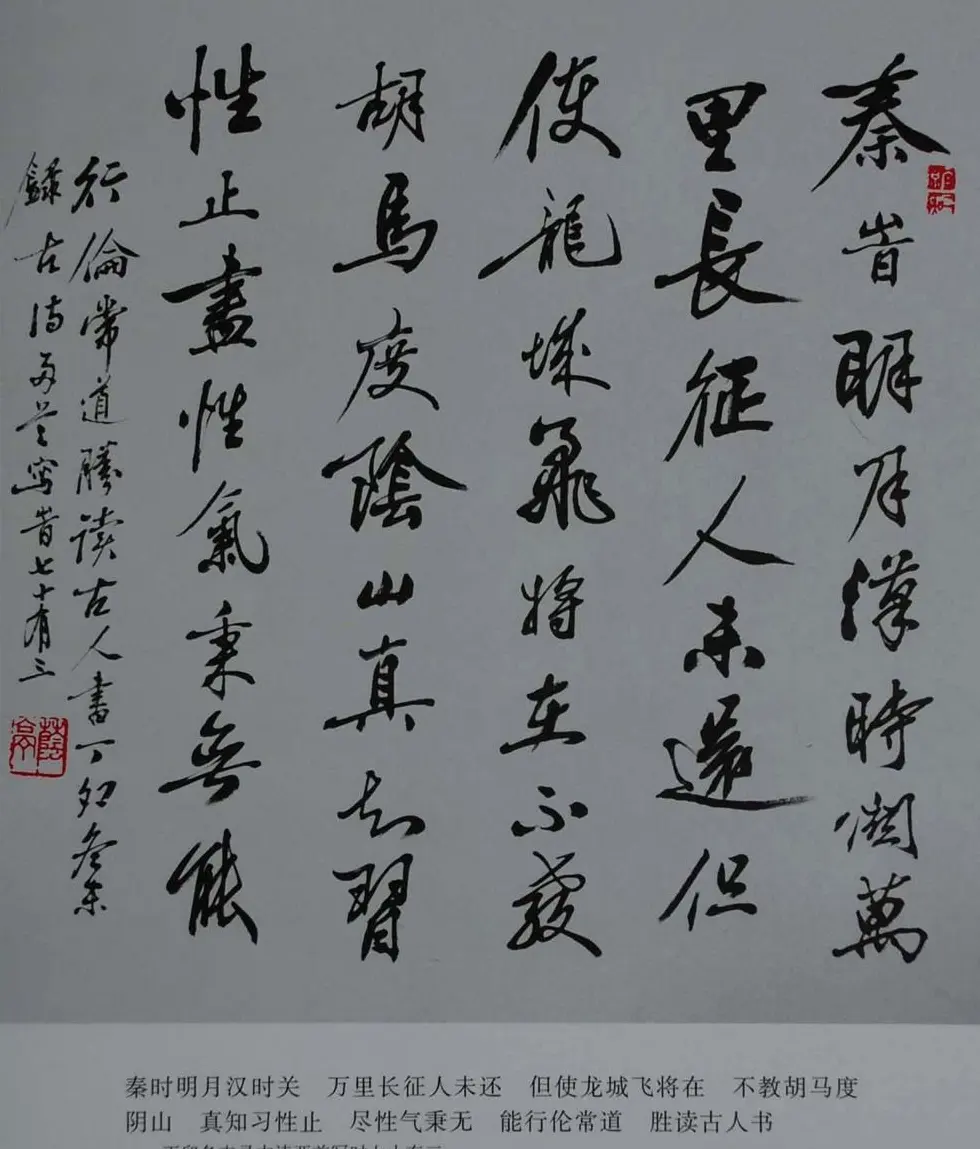 秦旹明月漢時関萬
里長征人未還但
使龍城飛將在不教
胡馬度陰山真知習
性止盡性氣秉無能
行倫常道勝讀古人書丁卯冬末
錄古詩兩首寫旹七十有三
秦时明月汉时关　万里长征人未还　但使龙城飞将在　不教胡马度
阴山　真知习性止　尽性气秉无　能行伦常道　胜读古人书